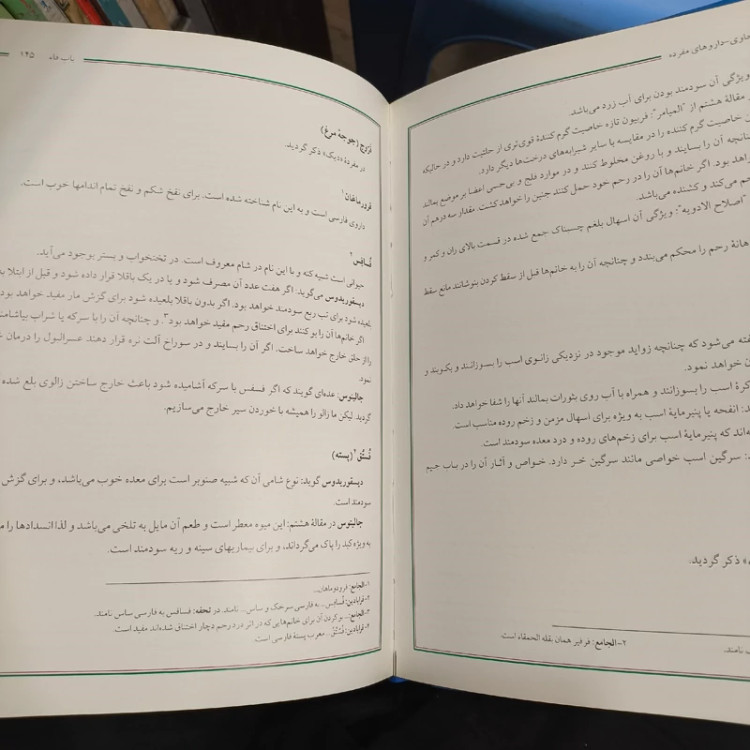 حاوی-داروهای مفرده
ویژگی آن سودمند بودن برای آب زرد می‌باشد.
مقالهٔ هشتم از "المیامر": فربیون تازه خاصیت گرم کنندهٔ قوی‌تری از حلتیت دارد و در حالیکه
خاصیت گرم کننده را در مقایسه با سایر شیرابه‌های درخت‌ها دیگر دارد.
چنانچه آن را بسایند و با روغن مخلوط کنند و در موارد فلج و بی‌حسی اعضا بر موضع بمالند
خواهد بود. اگر خانم‌ها آن را در رحم خود حمل کنند جنین را خواهد کشت. مقدار سه درهم آن
می‌کند و کشنده می‌باشد.
"اصلاح الادویه": ویژگی آن اسهال بلغم چسناک جمع شده در قسمت بالای ران و کمر و
دهانهٔ رحم را محکم می‌بندد و چنانچه آن را به خانم‌ها قبل از سقط کردن بنوشانند مانع سقط
گفته می‌شود که چنانچه زواید موجود در نزدیکی زانوی اسب را بسوزانند و بکوبند و
خواهد نمود.
کرهٔ اسب را بسوزانند و همراه با آب روی بثورات بمالند آنها را شفا خواهد داد.
انفحه یا پنیرمایهٔ اسب به ویژه برای اسهال مزمن و زخم روده مناسب است.
که پنیرمایهٔ اسب برای زخم‌های روده و درد معده سودمند است.
سرگین اسب خواصی مانند سرگین خر دارد. خواص و آثار آن را در باب جیم
ذکر گردید.
۲-الجامع: فرفیر همان بقله الحمقاء است.
نامند.
باب فاء ۱۴۵
فرّوج (جوجهٔ مرغ)
در مفردهٔ «دیک» ذکر گردید.
فردرماهان۱
داروی فارسی است و به این نام شناخته شده است. برای نفخ شکم و نفخ تمام اندامها خوب است.
فَسافِس۲
حیوانی است شبیه کنه و با این نام در شام معروف است. در تختخواب و بستر بوجود می‌آید.
دیسقوریدوس می‌گوید: اگر هفت عدد آن مصرف شود و یا در یک باقلا قرار داده شود و قبل از ابتلا به
بلعیده شود برای تب ربع سودمند خواهد بود. اگر بدون باقلا بلعیده شود برای گزش مار مفید خواهد بود
اگر خانم‌ها آن را بو کنند برای اختناق رحم مفید خواهد بود۳. و چنانچه آن را با سرکه یا شراب بیاشامند
را از حلق خارج خواهد ساخت. اگر آن را بسایند و در سوراخ آلت نره قرار دهند عسرالبول را درمان
نمود.
جالینوس: عده‌ای گویند که اگر فسفس با سرکه آشامیده شود باعث خارج ساختن زالوی بلع شده
گردید. لیکن ما زالو را همیشه با خوردن سیر خارج می‌سازیم.
فُستُق۴ (پسته)
دیسقوریدوس گوید: نوع شامی آن که شبیه صنوبر است برای معده خوب می‌باشد، و برای گزش
سودمند است.
جالینوس در مقالهٔ هشتم: این میوه معطر است و طعم آن مایل به تلخی می‌باشد و لذا انسدادها را
به ویژه کبد را پاک می‌گرداند، و برای بیماریهای سینه و ریه سودمند است.
۱-الجامع: فرودوماهان...
۲-قرابادین: فَسافِس... به فارسی سرخک و ساس... نامند. در تحفه: فسافس به فارسی ساس نامند.
۳-الجامع:... بو کردن آن برای خانم‌هایی که در اثر درد رحم دچار اختناق شده‌اند مفید است
۴-قرابادین: فُستُق... معرب پستهٔ فارسی است.